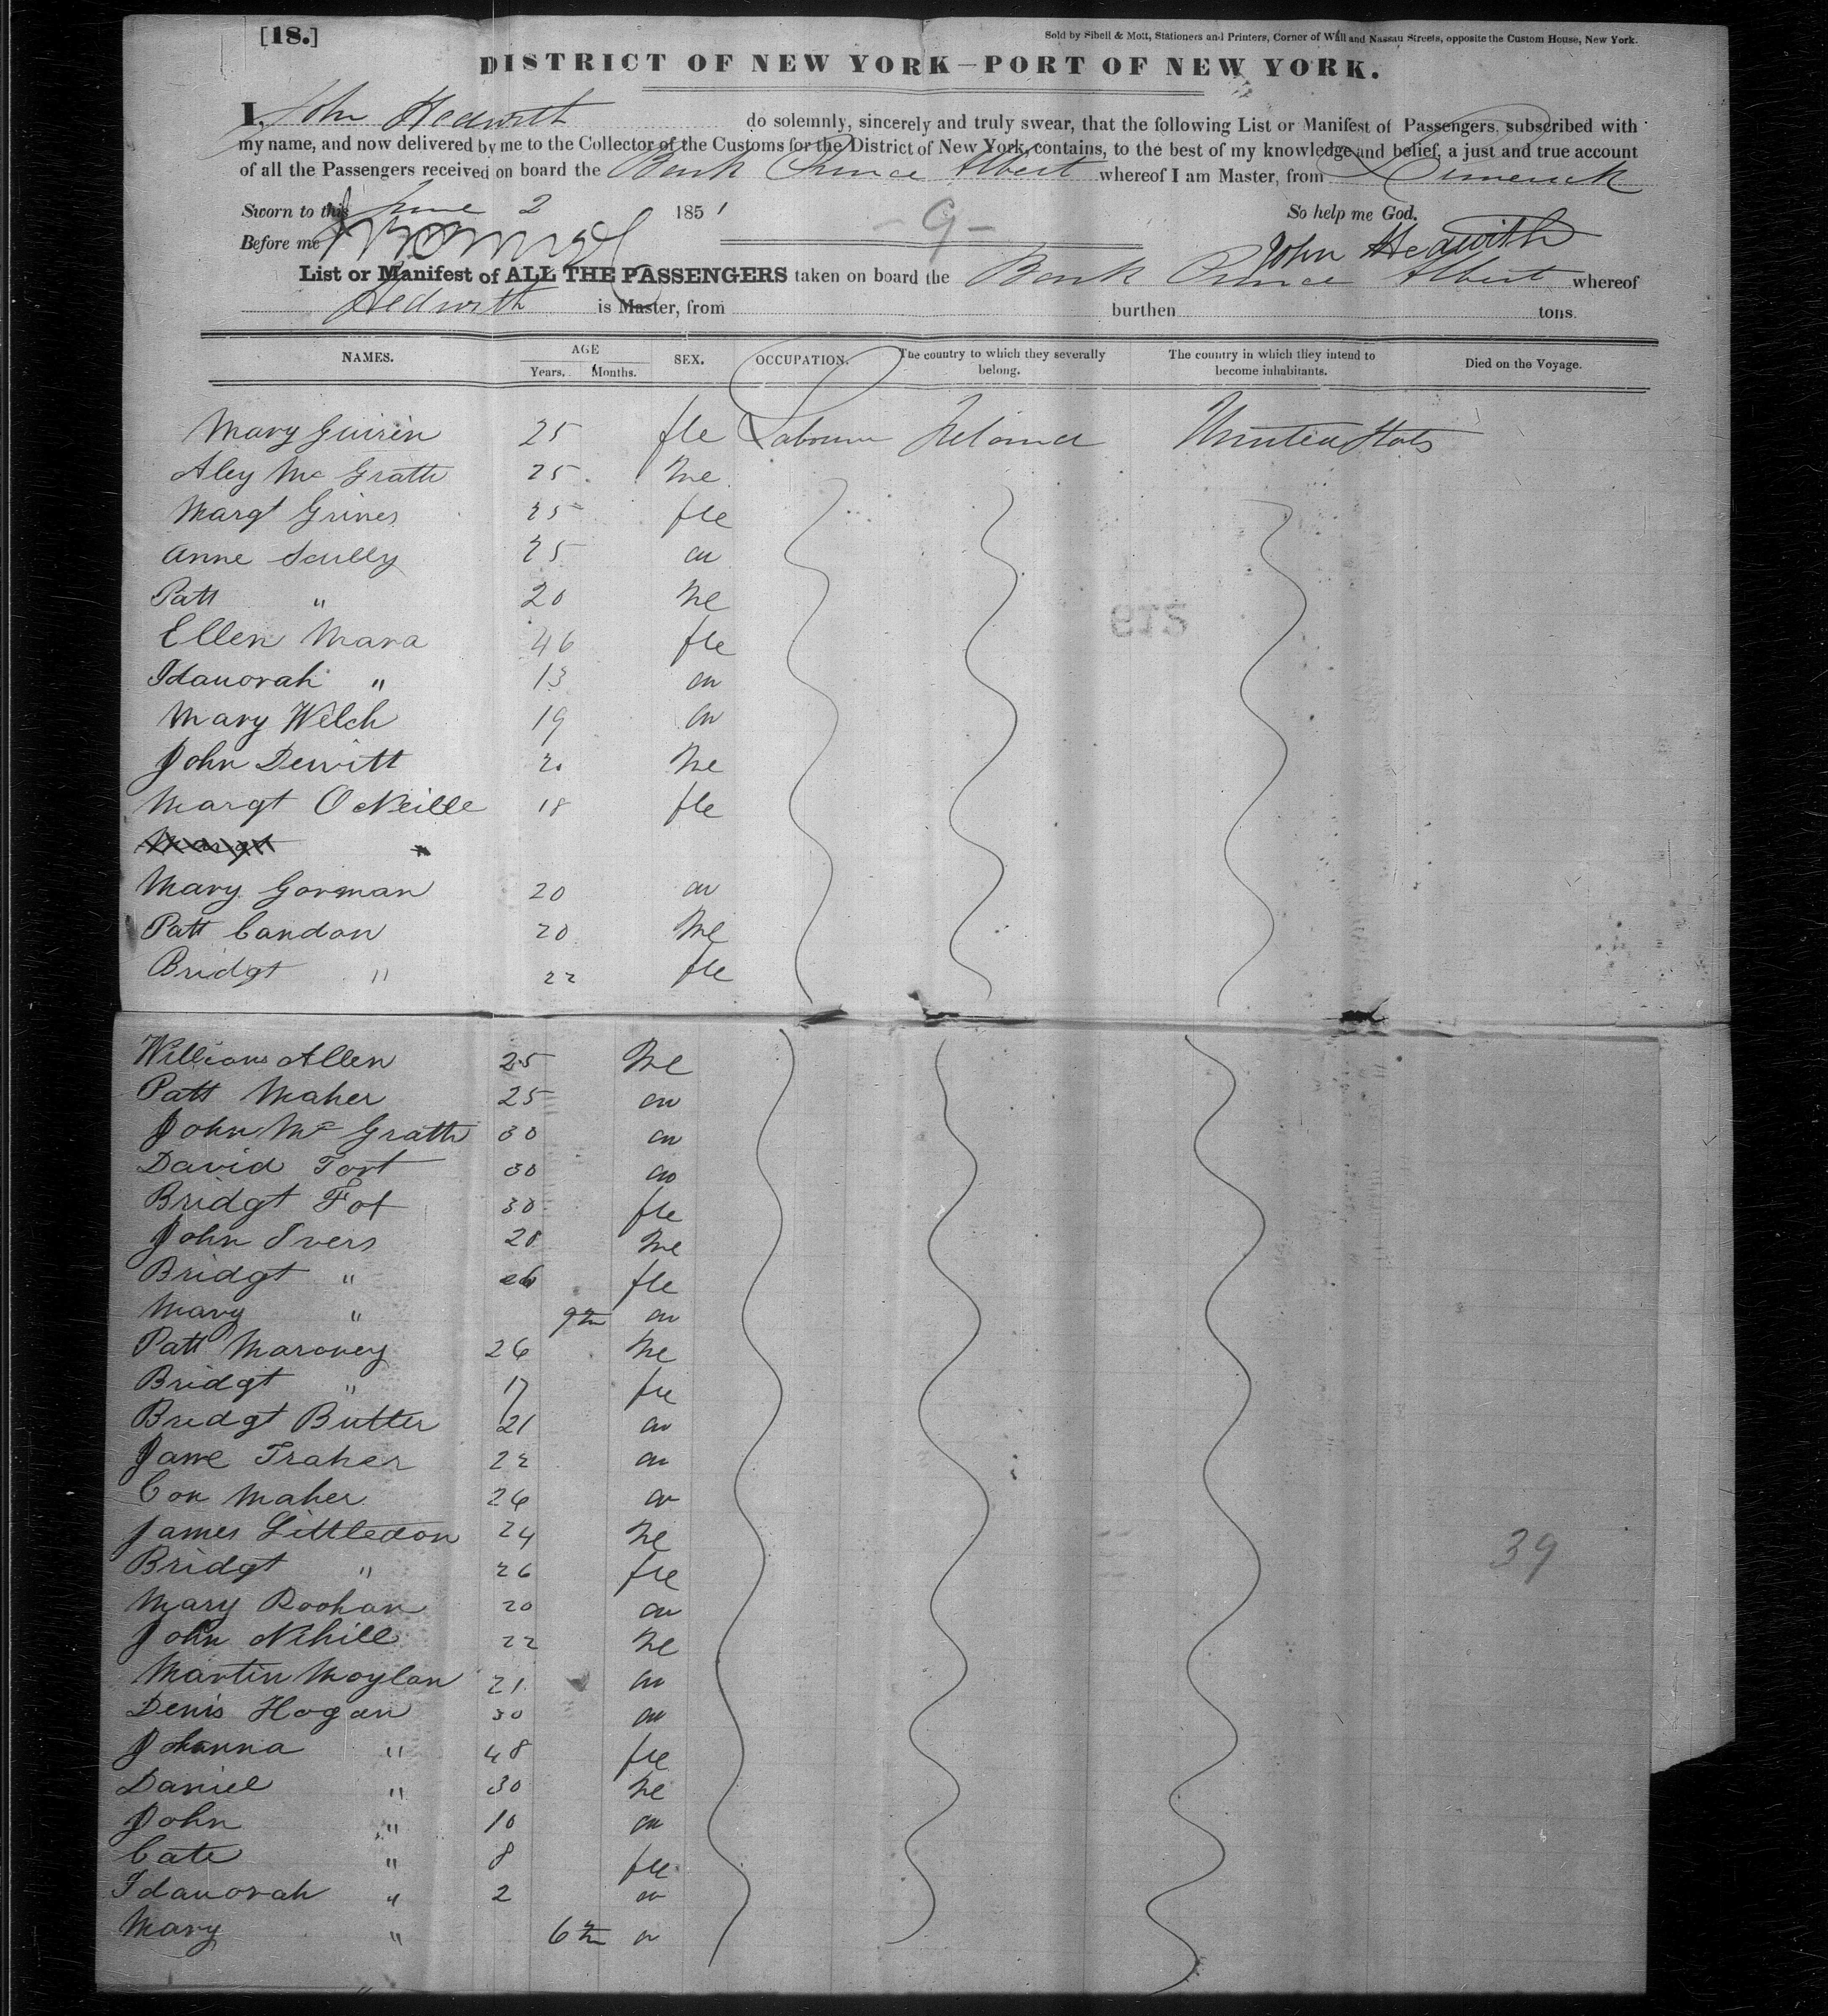 [18.]
Sold by Sibell & Mott, Stationers and Printers, Corner of Wall and Nassau Streets, opposite the Custom House, New York.
DISTRICT OF NEW YORK—PORT OF NEW YORK.
I, John Hedwith do solemnly, sincerely and truly swear, that the following List or Manifest of Passengers, subscribed with
my name, and now delivered by me to the Collector of the Customs for the District of New York, contains, to the best of my knowledge and belief, a just and true account
of all the Passengers received on board the Bark Prince Albert whereof I am Master, from Limerick
Sworn to this June 2 1851 So help me God.
Before me
- 9 -
John Hedwith
List or Manifest of ALL THE PASSENGERS taken on board the Bark Prince Albert whereof
Hedwith is Master, from burthen tons.
NAMES. AGE SEX. OCCUPATION. The country to which they severally belong. The country in which they intend to become inhabitants. Died on the Voyage.
Years. Months.
Mary Guiren 25 fle Labourer Ireland United Stats
Aley Mc Grath 25 Me
Margt Grines 25 fle
Anne Scully 25 "
Patt " 20 Me
Ellen Mara 46 fle
Idanorah " 13 "
Mary Welch 19 "
John Dewitt Me
Margt O Neille 18 fle
Margt "
Mary Gorman 20 "
Patt Candon 20 Me
Bridgt " 22 fle
912
William Allen 25 Me
Patt Maher 25 "
John Mc Grath 30 "
David Fort 30 "
Bridgt Fot 30 fle
John Ivers 28 Me
Bridgt " 26 fle
Mary " 9m "
Patt Maroney 26 Me
Bridgt " 17 fle
Bridgt Butter 21 "
Jane Traher 22 "
Con Maher 26 "
James Littledon 24 Me
Bridgt " 26 fle
39
Mary Roohan 20 "
John Nihill 22 Me
Martin Moylan 21 "
Denis Hogan 30 "
Johanna " 48 fle
Daniel " 30 Me
John " 10 "
Cate " 8 fle
Idanorah " 2 "
Mary " 6m "